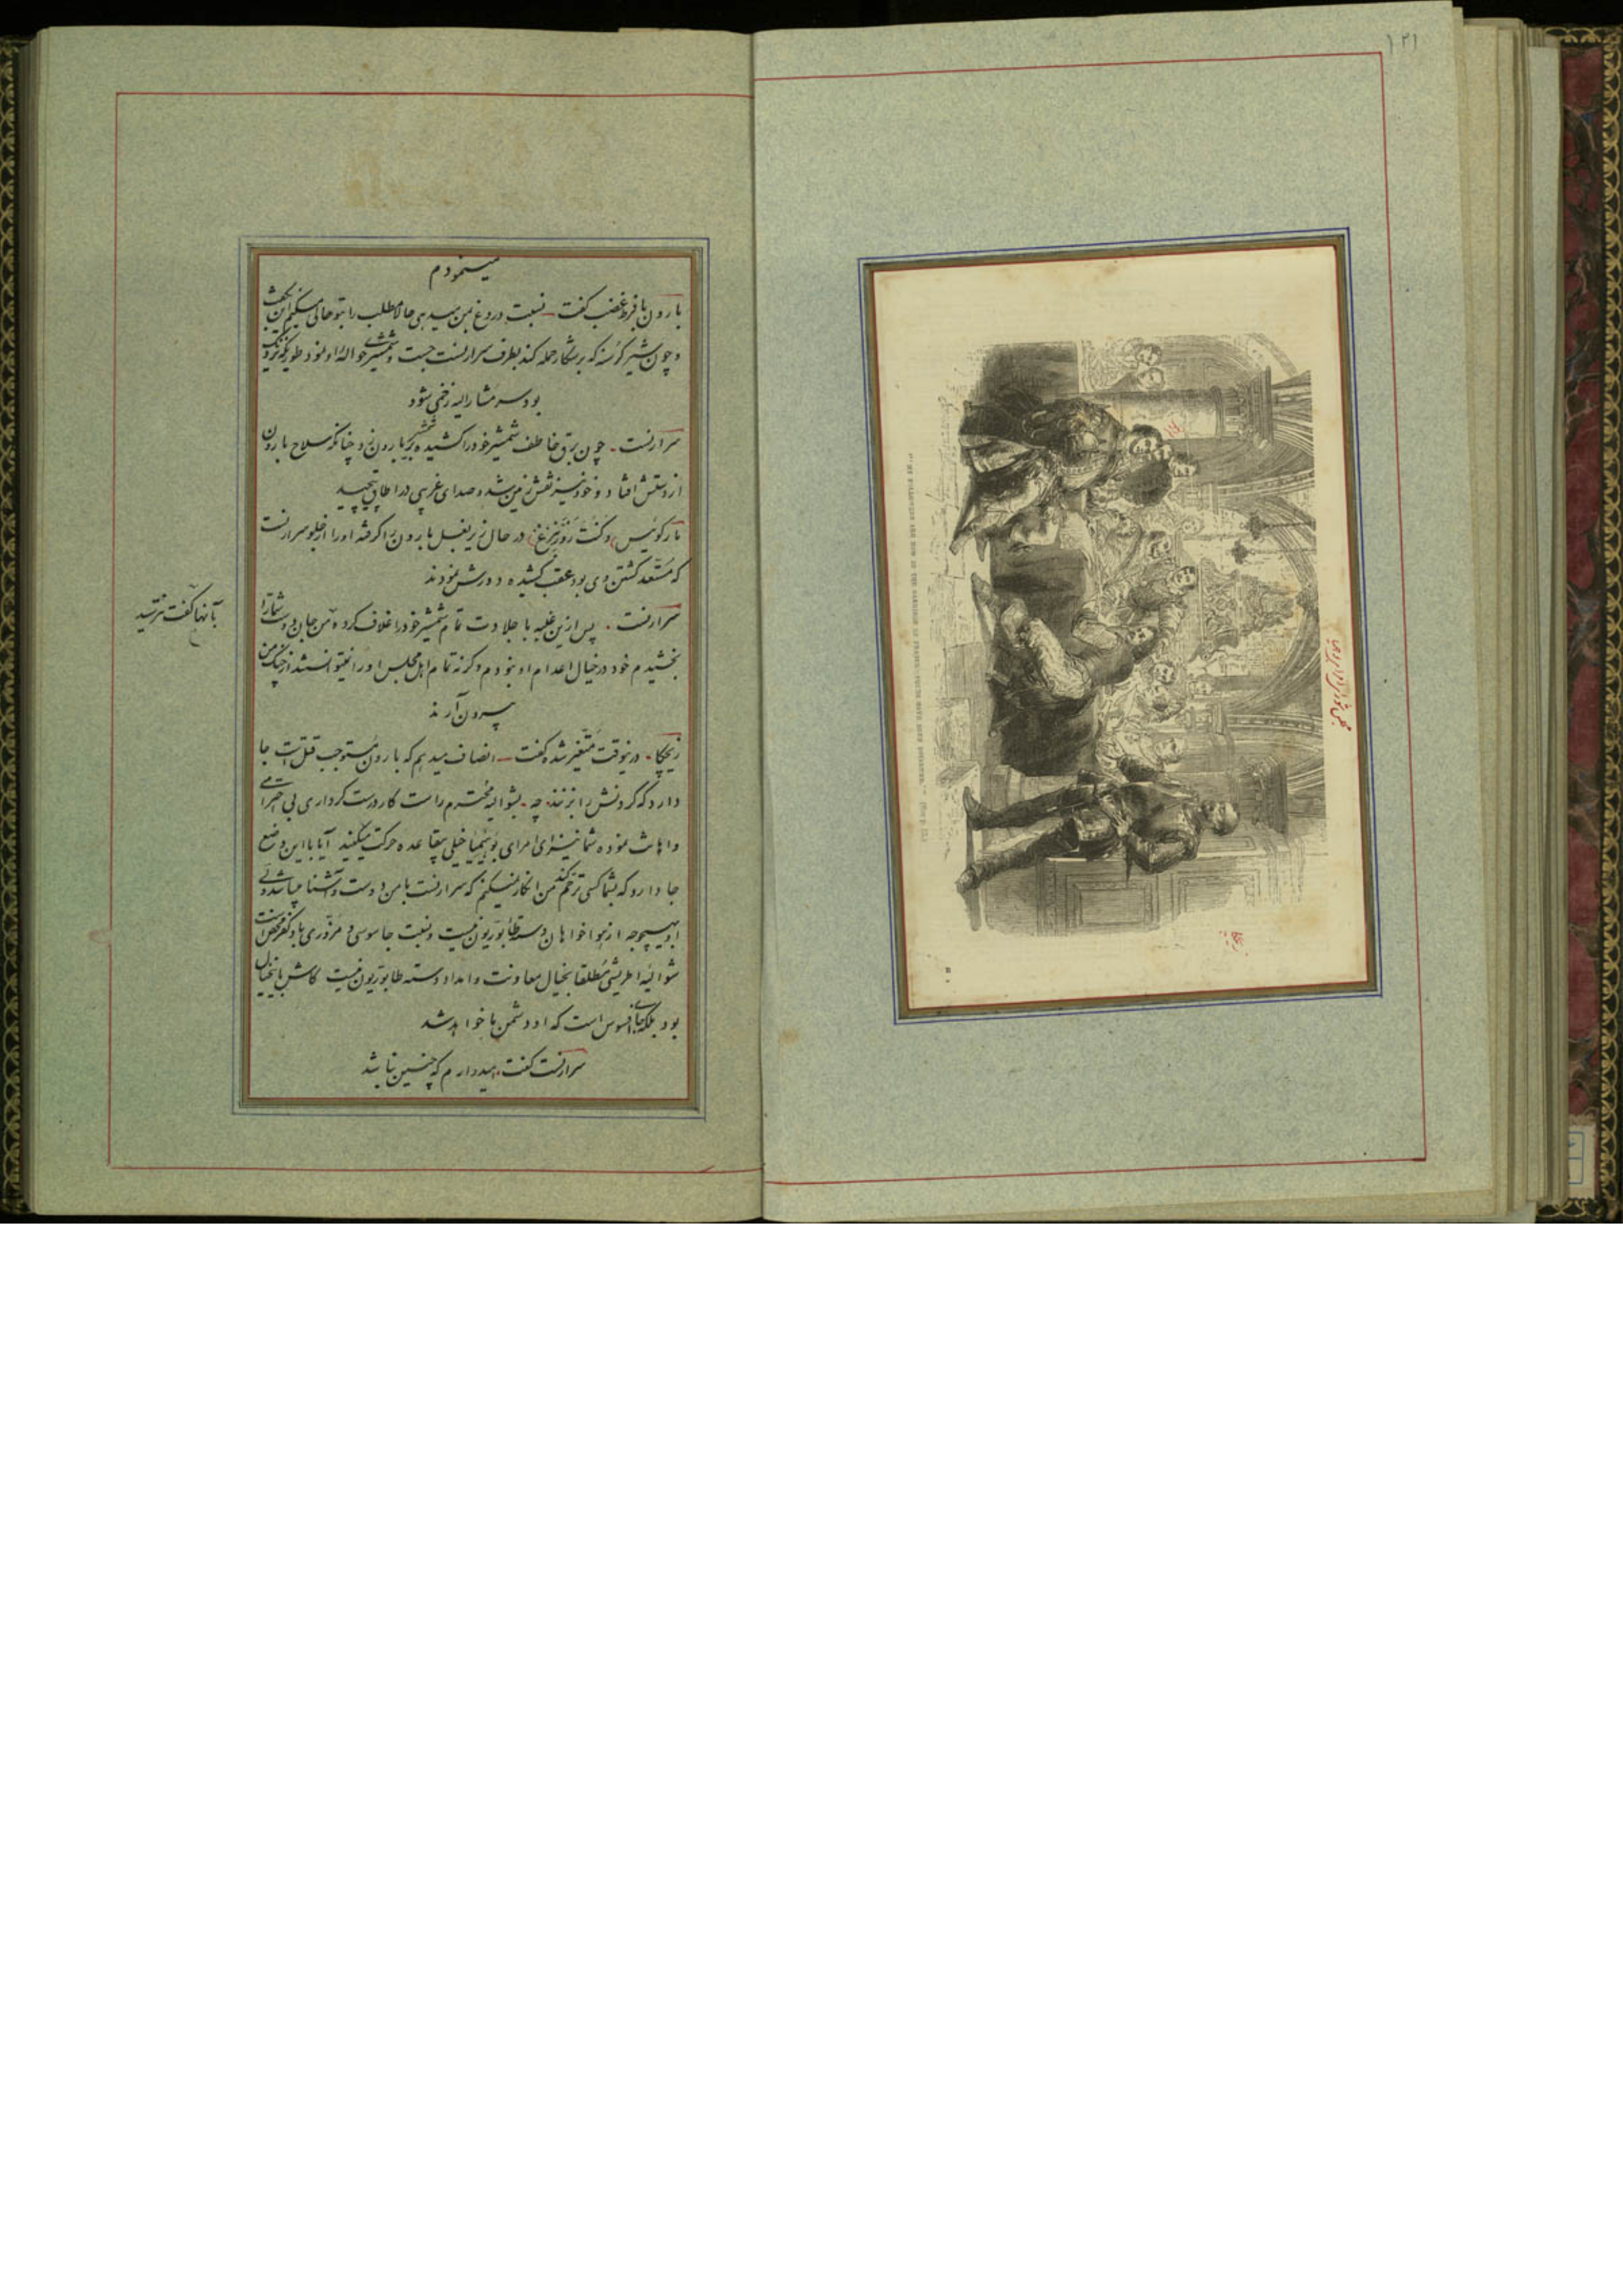 ۱۲۱
مینمودم
بارون با فرط غضب گفت نسبت دروغ بمن میدهی حالا مطلب را بتو حالی میکنم این بگفت
و چون شیر گرسنه که بر شکار حمله کند بطرف سرارنست جست و شمشیری حوالهٔ او نمود طوریکه نزدیک
بود سر مشارالیه زخمی شود
سرارنست چون برق خاطف شمشیر خود را کشیده بر شمشیر بارون زد چنانکه سلاح بارون
از دستش افتاد و خود نیز نقش زمین شد و صدای غریبی در اطاق پیچید
مارکوئیس و کنت روزنبرغ در حال زیر بغل بارون را گرفته او را از جلو سرارنست
که مستعد کشتن وی بود عقب کشیده دورش نمودند
سرارنست پس ازین غلبه با جلادت تمام شمشیر خود را غلاف کرده من جان دوست شما را
بآنها گفت نترسید
بخشیدم خود در خیال اعدام او نبودم وگرنه تمام اهل مجلس او را نمیتوانستند از چنگ من
بیرون آرند
زیچکا درینوقت متغیر شده گفت انصاف میدهم که بارون مستوجب قتل است جا
دارد که گردنش را بزنند چه بشوالیه محترم راست کار درست کرداری بی احترامی
و اهانت نموده شما نیز ای امرای بوهیمیا خیلی بیقاعده حرکت میکنید آیا با این وضع
جا دارد که بشما کسی ترحم کند من انکار نمیکنم که سرارنست با من دوست و آشنا میباشد ولی
او بهیچوجه از هواخواهان دسته طابوریون نیست و نسبت جاسوسی و مزوری باو کفر محض است
شوالیهٔ اطریشی مطلقا بخیال معاونت و امداد دسته طابوریون نیست کاش باینخیال
بود بلکه جای افسوس است که او دشمن ما خواهد شد
سرارنست گفت امیدوارم که چنین نباشد